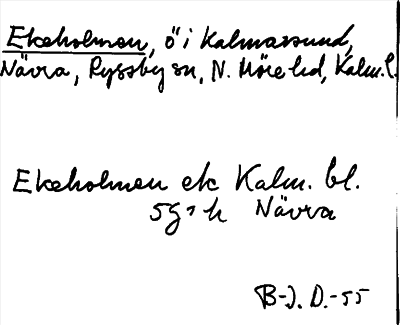 Ekeholmen, ö i Kalmarsund,
Návra, Ryssby sn, N. Möre hd, Kalm. l.
Ekeholmen ek Kalm. bl.
5g7h Návra
B-J. D. -55